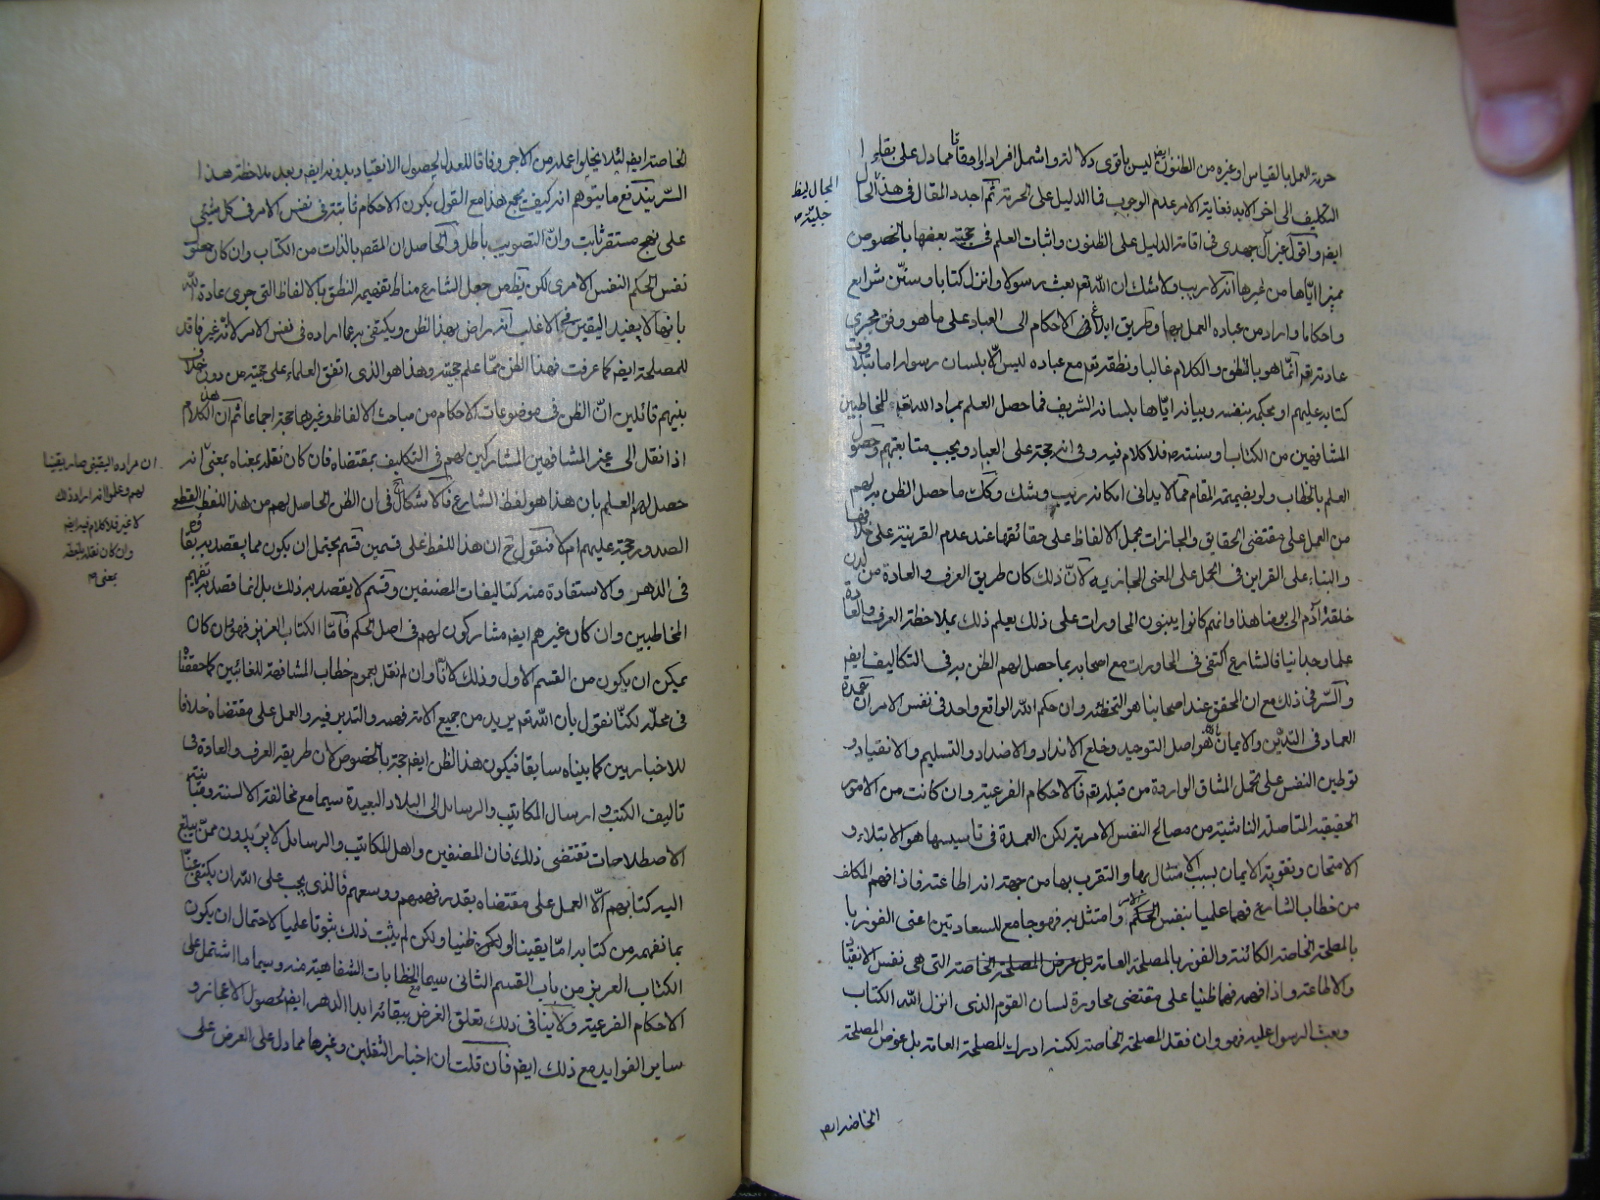 حرمة العمل بالقياس او غيره من الظنون ايض ليس باقوى دلالة واشمل افرادا واحقاقا مما دل على بقاء
التكليف الى اخر الابد نغاية الامر عدم الوجوب فما الدليل على الحرمة ثم اجدد المقال في هذا
المجال ليظ
جلية
ايض واقول غير آل جهدى في اقامة الدليل على الظنون واثبات العلم في حجية بعضها بالخصوص
مميزا ايّاها من غيرها انه لا ريب ولا شك ان الله تعم بعث رسولا وانزل كتابا وسنّن شرايع
واحكاما واراد من عباده العمل بها وطريق ابلاغ الاحكام الى العباد على ما هو وفق مجرى
عادته تعم انّما هو بالنطق والكلام غالبا ونطقه تعم مع عباده ليس الّا بلسان رسوله اما بتلاوة
كتابه عليهم او بحكمه بنفسه وبيانه ايّاها بلسانه الشريف فما حصل العلم بمراد الله تعم للمخاطبين
المشافهين من الكتاب وسنته ص فلا كلام فيه وفى انه حجة على العباد ويجب متابعتهم وحصول
العلم بالخطاب ولو بضميمة المقام مما لا يدانى امكانه ريب وشك وكك ما حصل الظن به لهم
من العمل على مقتضى الحقايق والمجازات بحمل الالفاظ على حقائقها عند عدم القرينة على خلافها
والبناء على القراين في الحمل على المعنى المجازى لانّ ذلك كان طريق العرف والعادة من لدن
خلقة آدم الى يومنا هذا وانهم كانوا يبنون المحاورات على ذلك يعلم ذلك بملاحظة العرف والعادة
علما وجدانيا فالشارع اكتفى في المحاورات مع اصحابه بما حصل لهم الظن به في التكاليف ايض
والسّر في ذلك مع ان المحقق عند اصحابنا هو التخطئة وان حكم الله الواقع واحد في نفس الامر ان عمدة
العماد في التديّن والايمان بالله هو اصل التوحيد وخلع الانداد والاضداد والتسليم والانقياد و
توطين النفس على تحمل المشاق الواردة من قبله تعم فالاحكام الفرعية وان كانت من الامور
الحقيقية المتاصلة الناشئة من مصالح النفس الامرية لكن العمدة في تاسيسها هو الابتلاء و
الامتحان وتقوية الايمان بسبب الامتثال بها والتقرب بها من جهة انه اطاعة فاذا فهم المكلف
من خطاب الشارع فهما علميا بنفس الحكم وامتثل به فهو جامع للسعادتين اعنى الفوز با
بالمصلحة الخاصة الكائنة والفوز بالمصلحة العامة بل عوض المصلحة الخاصة التى هى نفس الانقياد
والاطاعة واذا فهمه فهما ظنيا على مقتضى محاورة لسان القوم الذى انزل الله الكتاب
وبعث الرسول عليه فهو وان فقد المصلحة الخاصة لكنه ادرك المصلحة العامة بل عوض المصلحة
الخاصة ايض
الخاصة ايض لئلا يخلوا عمله من الاجر وفاقا للعدل لحصول الانقياد بدونه ايض وبعد ملاحظة هذا
السّر يندفع ما يتوهم انه كيف يجمع هذا مع القول بكون الاحكام ثابتة في نفس الامر في كل شيئى
على نهج مستقر ثابت وانّ التصويب باطل والحاصل ان المقصم بالذات من الكتاب وان كان حصول
نفس الحكم النفس الامرى لكن يظهر من جعل الشارع مناط تفهيمه النطق بالالفاظ التى جرى عادة الله
بانها لا يفيد اليقين في الاغلب انه راض بهذا الظن ويكتفى به عما اراده في نفس الامر لانّه غير فاقد
للمصلحة ايض كما عرفت فهذا الظن ممّا علم حجيته وهذا هو الذى اتفق العلماء على حجيته من دون خلاف
بينهم قائلين انّ الظن في موضوعات الاحكام من مباحث الالفاظ وغيرها حجة اجماعا ثم ان هذا الكلام
اذا نقل الى غير المشافهين المشاركين لهم في التكليف بمقتضاه فان كان نقله بمعناه بمعنى انه
ان مراده اليقينى صار يقينا
لهم وعلموا انه اراد ذلك
لا غير فلا كلام فيه ايض
وان كان نقله بلفظه
بمعنى ص
حصل لهم العلم بان هذا هو لفظ الشارع فالاشكال في ان الظن الحاصل لهم من هذا اللفظ القطعى
الصدور حجة عليهم ام لا فنقول ح ان هذا اللفظ على قسمين قسم يحتمل ان يكون مما يقصد به بقائه
في الدهر والاستفادة منه كتاليفات المصنفين وقسم لا يقصد به ذلك بل انما قصد به تفهيم
المخاطبين وان كان غيرهم ايض مشاركون لهم في اصل الحكم فامّا الكتاب العزيز فهو وان كان
يمكن ان يكون من القسم الاول وذلك لانّا وان لم نقل بعموم خطاب المشافهة للغائبين كما حققناه
في محلّه لكنّا نقول بان الله تعم يريد من جميع الامة فهمه والتدبر فيه والعمل على مقتضاه خلافا
للاخباريين كما بيناه سابقا فيكون هذا الظن ايض حجة بالخصوص لان طريقة العرف والعادة في
تاليف الكتب و ارسال المكاتيب والرسائل الى البلاد البعيدة سيما مع مخالفة الالسنة وتباين
الاصطلاحات تقتضى ذلك فان المصنفين واهل المكاتيب والرسائل لا يريدون ممن يبلغ
اليه كتابهم الّا العمل على مقتضاه بقدر فهمهم ووسعهم فالذى يجب على الله ان يكتفى عنّا
بما نفهمه من كتابه امّا يقينا او ظنيا ولكن لم يثبت ذلك ثبوتا علميا لاحتمال ان يكون
الكتاب العزيز من باب القسم الثانى سيما الخطابات الشفاهية منه وسيما ما اشتمل على
الاحكام الفرعية ولا ينافى ذلك تعلق الغرض ببقائه ابدا الدهر ايض لحصول الاعجاز و
ساير الفوايد مع ذلك ايض فان قلت ان اخبار الثقلين وغيرها مما دل على العرض على